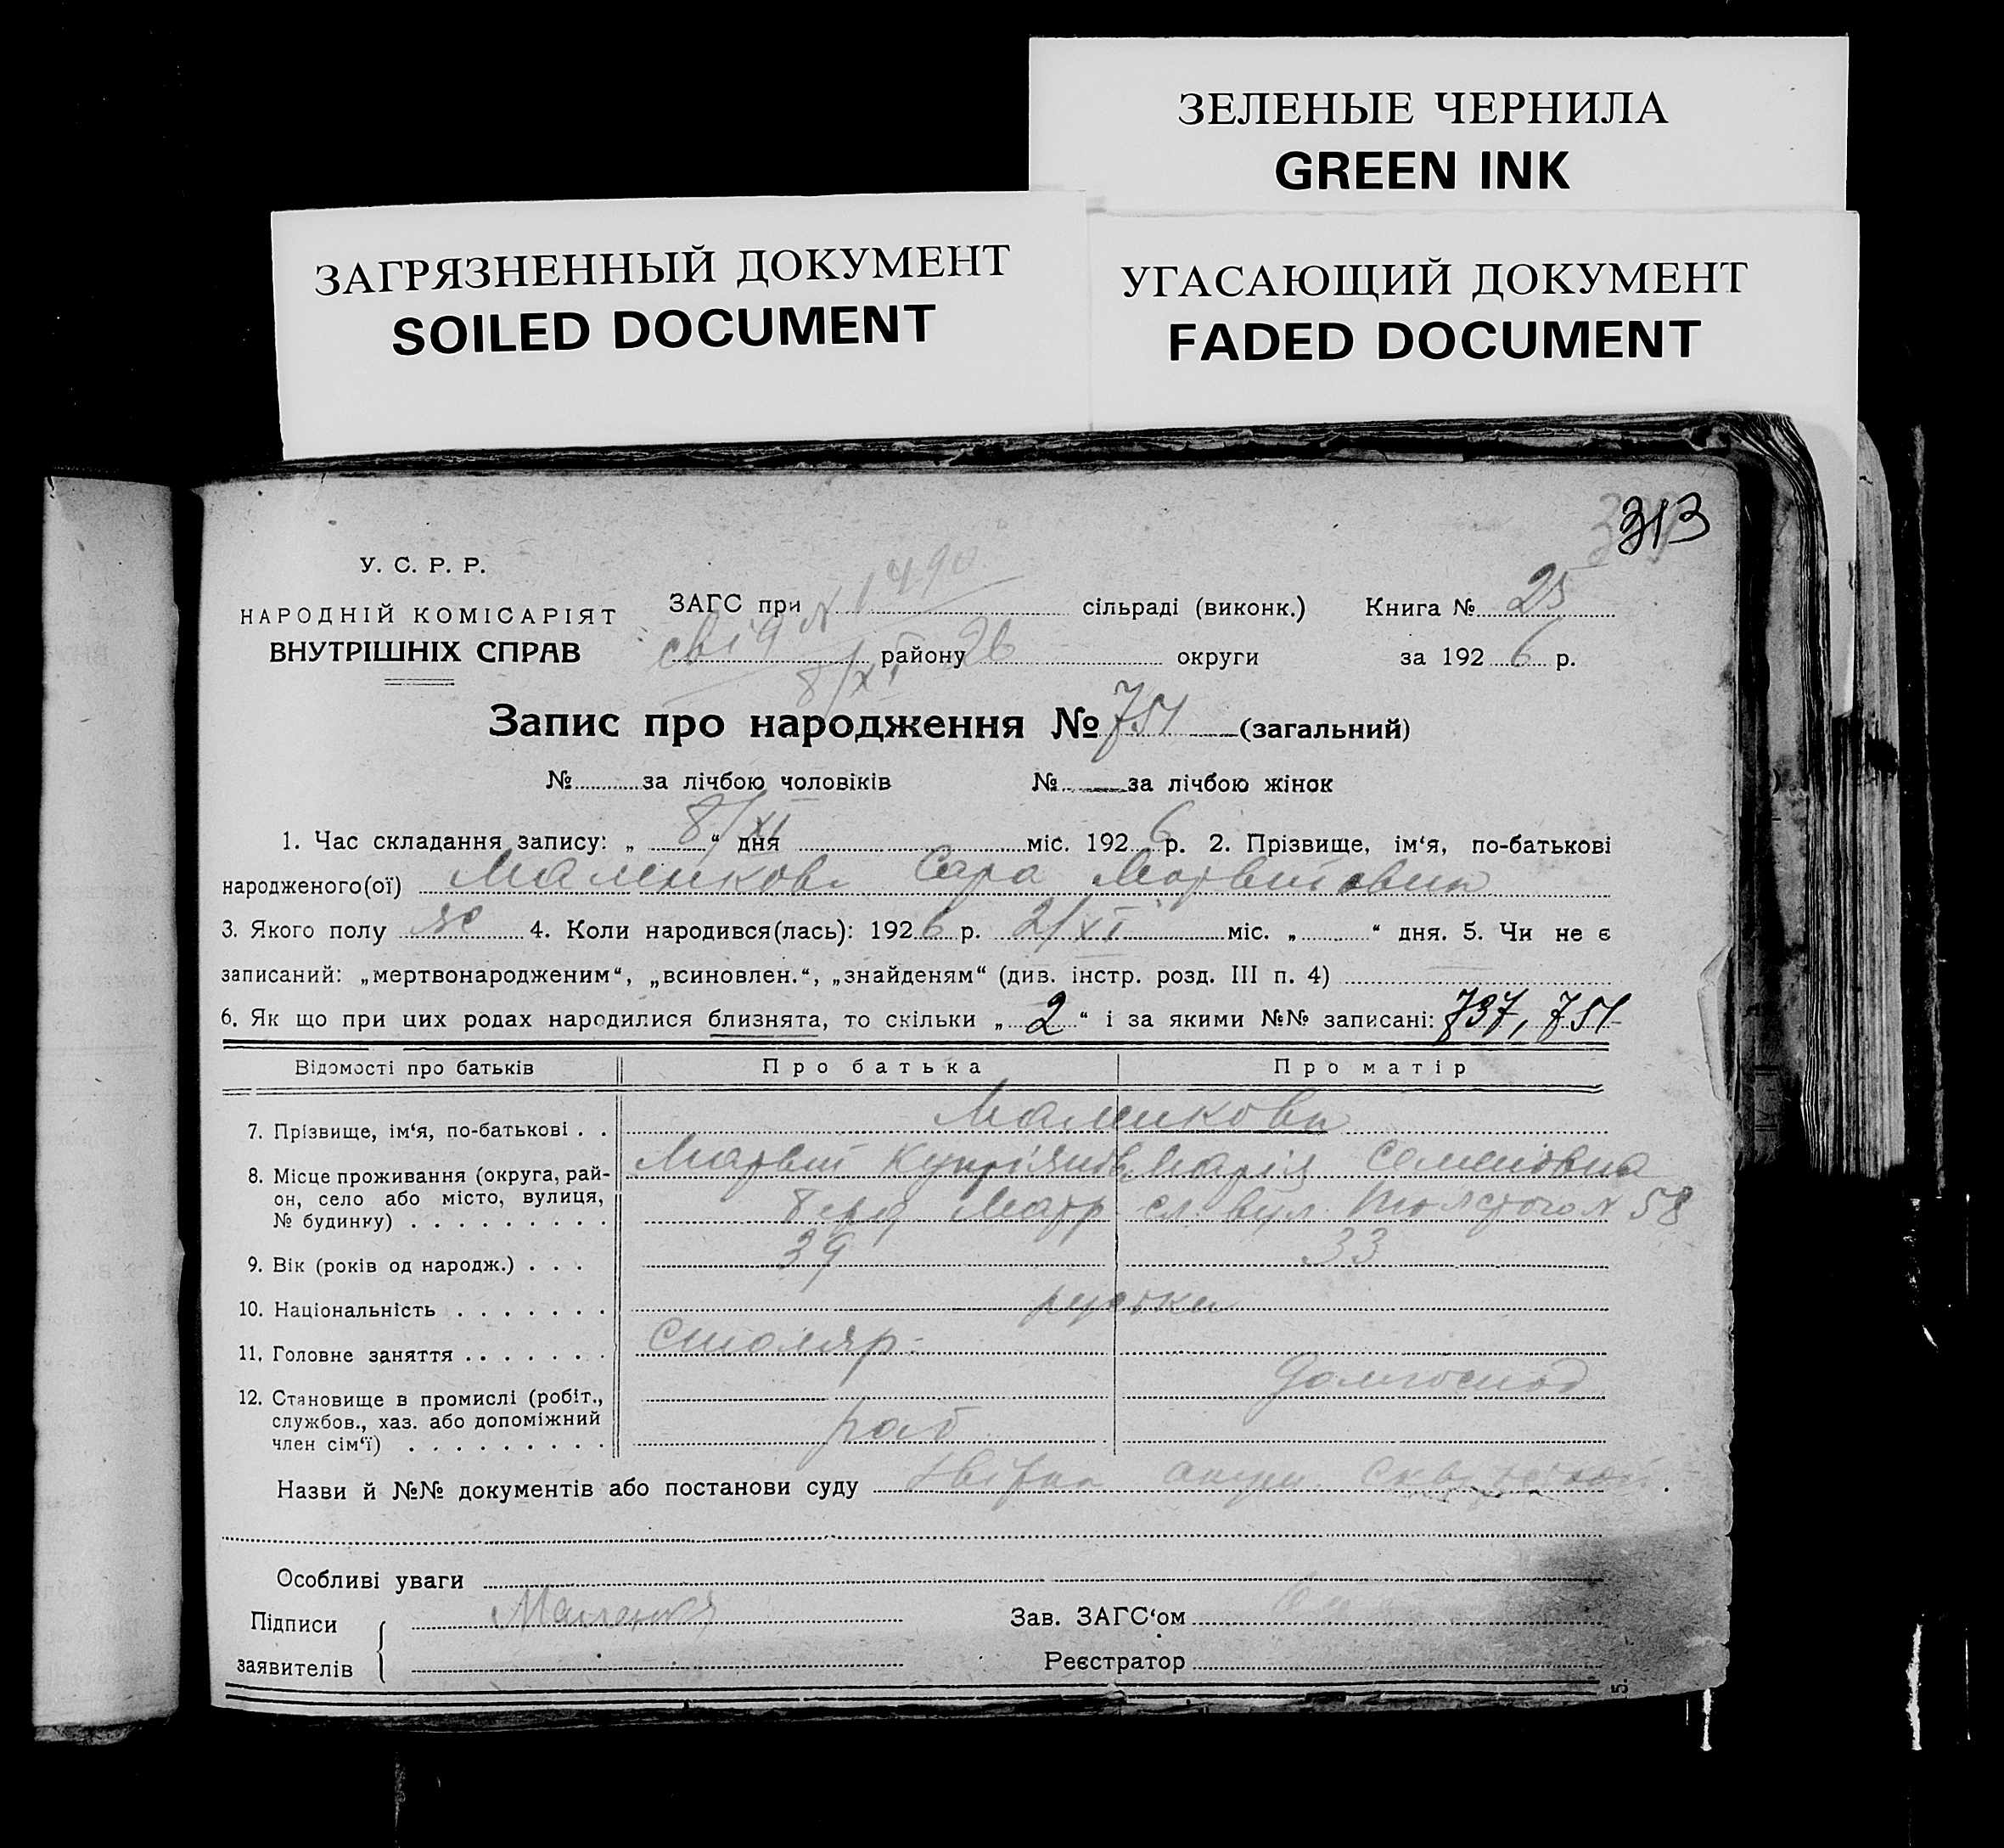 ЗЕЛЕНЫЕ ЧЕРНИЛА
GREEN INK
ЗАГРЯЗНЕННЫЙ ДОКУМЕНТ
SOILED DOCUMENT
УГАСАЮЩИЙ ДОКУМЕНТ
FADED DOCUMENT
313
У. С. Р. Р.
НАРОДНІЙ КОМІСАРІЯТ
ВНУТРІШНІХ СПРАВ
ЗАГС при № 1490 сільраді (виконк.) Книга № 25
свід району 26 округи за 1926 р.
8/XI
Запис про народження № 751 (загальний)
№ за лічбою чоловіків № за лічбою жінок
1. Час складання запису: „ 8/XI “ дня міс. 1926 р. 2. Прізвище, ім‘я, по-батькові
народженого(ої) Сара
3. Якого полу же 4. Коли народився(лась): 1926 р. 2/XI міс. „ “ дня. 5. Чи не є
записаний: „мертвонародженим“, „всиновлен.“, „знайденям“ (див. інстр. розд. III п. 4)
6. Як що при цих родах народилися близнята, то скільки „ 2 “ і за якими №№ записані: 737, 751
Відомості про батьків Про батька Про матір
7. Прізвище, ім‘я, по-батькові . .
8. Місце проживання (округа, рай-
он, село або місто, вулиця,
№ будинку) . . . . . . . . .
Марія Семеновна
вул. Толстого № 58
9. Вік (років од народж.) . . . 39 33
10. Національність . . . . . . .
11. Головне заняття . . . . . . . столяр
12. Становище в промислі (робіт.,
службов., хаз. або допоміжний
член сім‘ї) . . . . . . . . .
домгоспод
роб
Назви й №№ документів або постанови суду
Особливі уваги
Підписи
заявителів
Зав. ЗАГС‘ом
Реєстратор